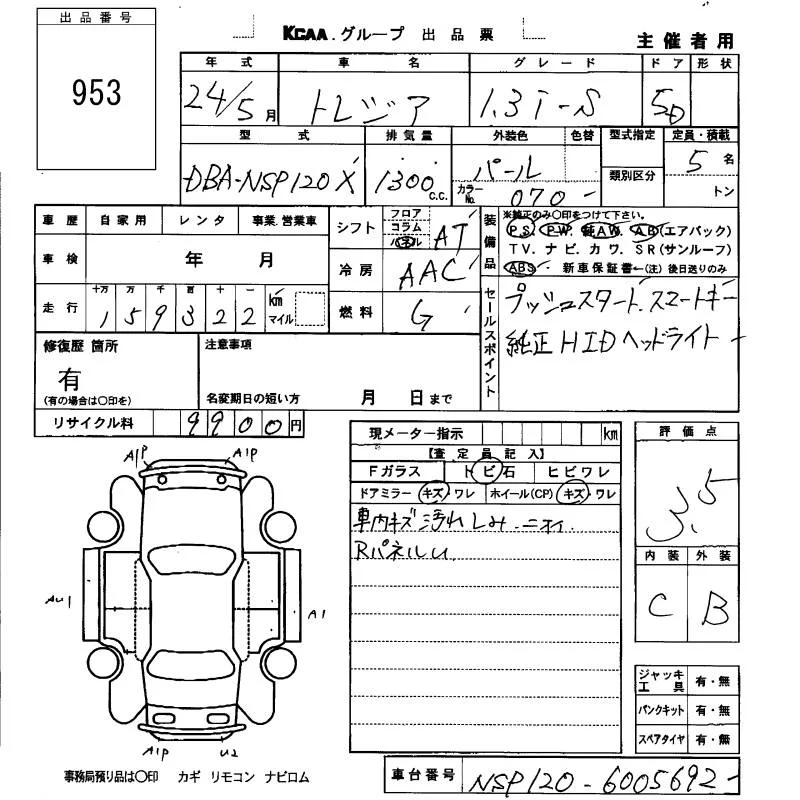 出品番号
953
KCAA.グループ 出品票
主催者用
年式 車名 グレード ドア 形状
24/5月 トレジア 1.3i-S 5D
型式 排気量 外装色 色替 型式指定 定員・積載
DBA-NSP120X 1300 C.C. パール 類別区分 5名
カラーNo. 070 トン
車歴 自家用 レンタ 事業.営業車
シフト フロア コラム パネル AT
装備品 ※純正のみ○印をつけて下さい。
PS. PW. 純AW. AB(エアバック)
TV. ナビ. カワ. SR(サンルーフ)
ABS 新車保証書←(注)後日送りのみ
車検 年 月
冷房 AAC
走行 十万 万 千 百 十 一
159322 km マイル
燃料 G
セールスポイント
プッシュスタート.スマートキー
純正HIDヘッドライト
修復歴 箇所
有
(有の場合は○印を)
注意事項
名変期日の短い方 月 日まで
リサイクル料 9900円
現メーター指示 km
【査定員記入】
Fガラス トビ石 ヒビワレ
ドアミラー キズ・ワレ ホイール(CP) キズ・ワレ
車内キズ汚れしみ.ニオイ.
RパネルU
評価点
3.5
内装 外装
C B
A1P A1P
AU1 A1
A1P U2
ジャッキ工具 有・無
パンクキット 有・無
スペアタイヤ 有・無
事務局預り品は○印 カギ リモコン ナビロム
車台番号 NSP120-6005692